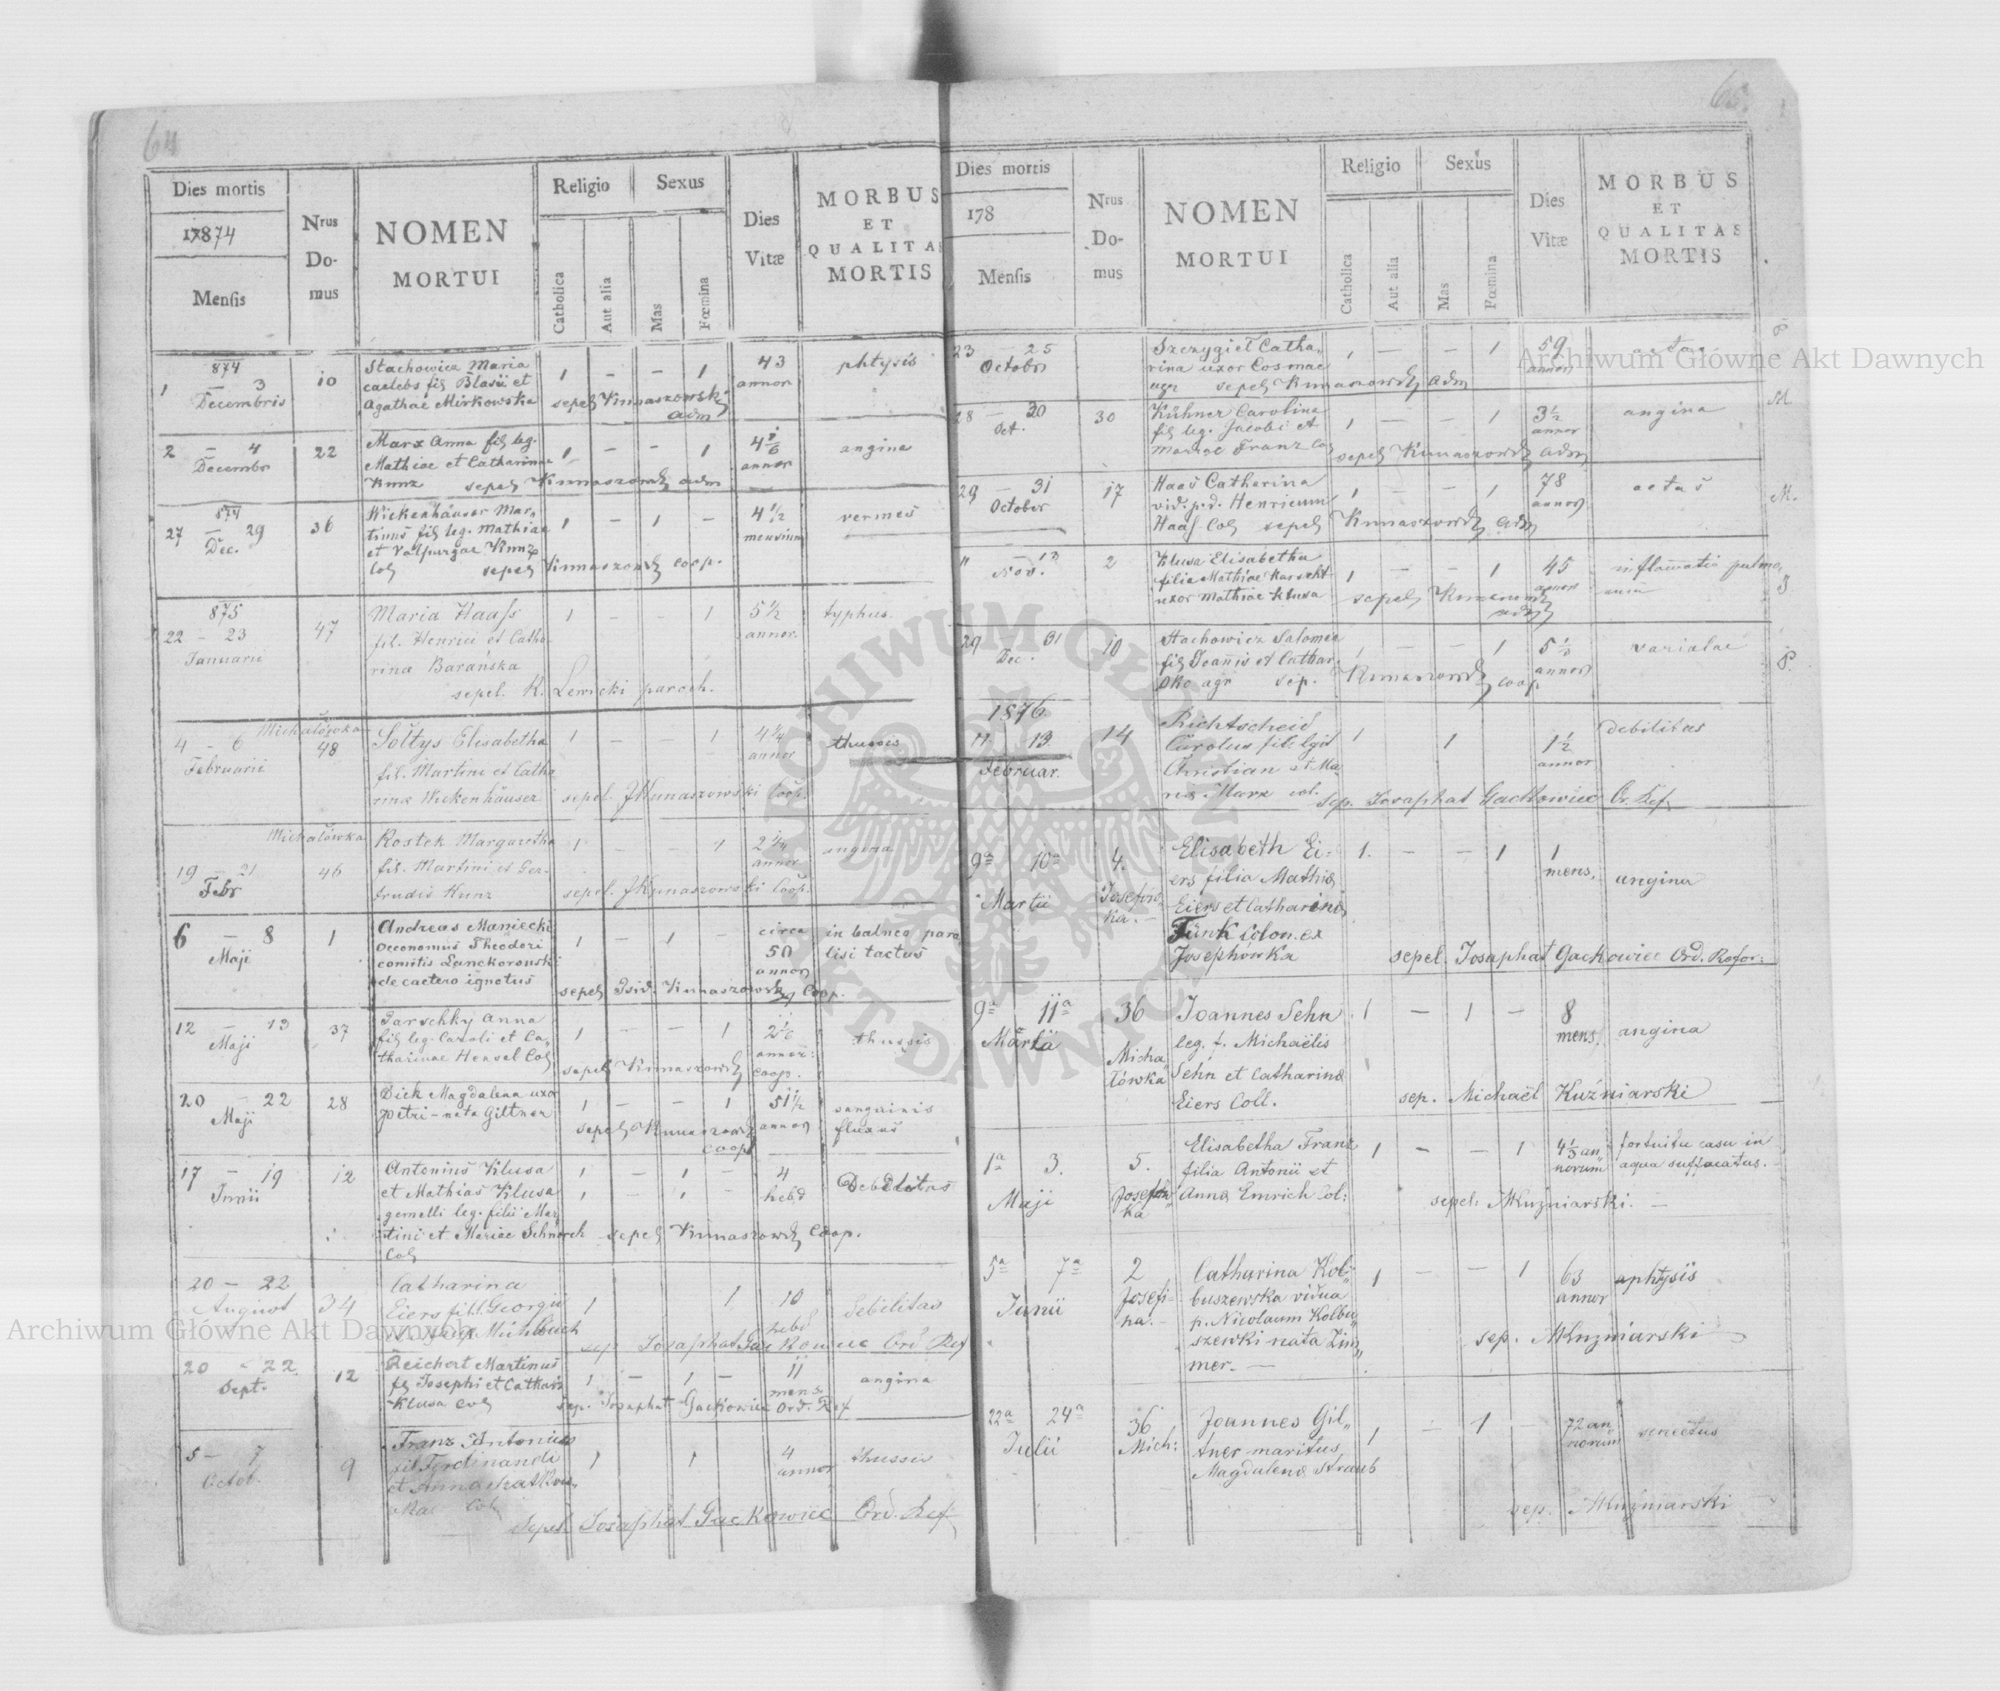 64
Dies mortis
17874
Mensis
Nrus
Do-
mus
NOMEN
MORTUI
Religio
Sexus
Catholica
Aut alia
Mas
Fœmina
Dies
Vitæ
MORBUS
ET
QUALITA
MORTIS
874
1 — 3
Decembris
10
Stachowicz Maria
caelebs fil Blasii et
Agathae Mirkowska
1 — — 1
sepel Kunaszowski
adm
43
annor
phtysis
2 — 4
Decembr
22
Marx Anna fil leg.
Mathiae et Catharinae
Kunz sepel Kunaszowski adm
1 — — 1
4 1/6
annor
angina
874
27 — 29
Dec.
36
Wickenhäuser Mar-
tinus fil leg. Mathiae
et Valpurgae Kunz
Col sepel Kunaszowski coop.
1 — 1 —
4 1/2
mensium
vermes
875
22 — 23
Januarii
47
Maria Haass
fil. Henrici et Catha
rina Barańska
sepel. K. Lewicki paroch.
1 — — 1
5 1/2
annor.
typhus.
Michałówka
4 — 6
Februarii
48
Sołtys Elisabetha
fil. Martini et Catha
rina Wickenhäuser
1 — — 1
sepel. JKunaszowski Coop.
4 1/4
annor
thussis
Michałówka
19 — 21
Febr
46
Rostek Margaretha
fil. Martini et Ger-
trudis Kunz
1 — — 1
sepel. JKunaszowski Coop.
2 1/4
annor
angina
6 — 8
Maji
1
Andreas Maniecki
Oeconomus Theodori
comitis Lanckoronski
de caetero ignotus
1 — 1 —
sepel Isid. Kunaszowski Coop.
circa
50
annor
in balneo para
lisi tactus
12 — 13
Maji
37
Jarschky Anna
fil leg. Caroli et Ca,
tharinae Hensel Col
1 — — 1
sepel Kunaszowski coop.
2 1/6
annor:
thussis
20 — 22
Maji
28
Dick Magdalena uxor
Petri — nata Giltner
1 — — 1
sepel Kunaszowski
coop
51 1/2
annor
sanguinis
fluxus
17 — 19
Junii
12
Antonius Klusa
et Mathias Klusa
gemelli leg. filii Mar
tini et Mariae Schnerch sepel Kunaszowski Coop.
Col
1 — 1 —
1 — 1 —
4
hebd
Debilitas
20 — 22
August
34
Catharina
Eiers fil l. Georgii
Mühlbach
1 1
sep Josaphat Gackowiec Ord Ref
10
hebd
debilitas
20 — 22
Sept.
12
Reichert Martinus
fil Josephi et Cathari
Klusa Col
1 — 1 —
sep. Josaphat Gackowiec Ord. Ref
11
mens.
angina
5 — 7
Octob.
9
Franz Antonius
fil Ferdinandi
et Anna
Col
1 1
sepel Josaphat Gackowiec Ord. Ref
4
annor
thussis
65
Dies mortis
178
Mensis
Nrus
Do-
mus
NOMEN
MORTUI
Religio
Sexus
Catholica
Aut alia
Mas
Fœmina
Dies
Vitæ
MORBUS
ET
QUALITAS
MORTIS
23 — 25
Octobr
Szczygieł Catha,
rina uxor Cosmae
agr sepel Kunaszowski adm
1 — — 1
59
annor
aetas
28 — 30
Oct.
30
Kühner Carolina
fil leg. Jacobi et
Mariae Franz Col
1 — — 1
sepel Kunaszowski adm
3 1/2
annor
angina
M.
29 — 31
October
17
Haas Catharina
vid. p.d. Henricum
Haas Col sepel Kunaszowski adm
1 — — 1
78
annor
aetas
M.
11 — 13
Nov.
2
Klusa Elisabetha
filia Mathiae
uxor Mathiae Klusa
1 — — 1
sepel Kunaszowski
adm
45
annor
inflamatio pulmo,
num
J
29 — 31
Dec.
10
Stachowicz Salomea
fil Joanis et Cathar.
Oko agr sep. Kunaszowski coop
1 — — 1
5 1/2
annor
variolae
P.
1876
11 13
Februar.
14
Richtscheid
Carolus fil lgit
Christian et Ma
ria Marx col.
1 1
sep. Josaphat Gackowiec Or. Ref
1 1/2
annor
debilitas
9a 10a
Martii
4.
Josefów
ka. —
Elisabeth Ei-
ers filia Mathiae
Eiers et Catharinae
Funk Colon. ex
Josephówka
1. — — 1
sepel. Josaphat Gackowiec Ord. Refor:
1
mens,
angina
9a 11a
Martii
36
Micha
łówka
Joannes Sehn
leg. f. Michaëlis
Sehn et Catharinae
Eiers Coll.
1 — 1 —
sep. Michaël Kuźniarski
8
mens,
angina
1a 3.
Maji
5.
Josefów
ka
Elisabetha Franz
filia Antonii et
Anna Emrich Col:
1 — — 1
sepel: MKuźniarski. —
4 1/3 an
norum
fortuitu casu in
aqua suffocatus.
5a 7a
Junii
2
Josefi-
na. —
Catharina Kol-
buszewska vidua
p. Nicolaum Kolbu,,
szewski nata Zim,,
mer. —
1 — — 1
sep. MKuzniarski
63
annor
aphtysis
22a 24a
Julii
36
Mich:
Joannes Gil,,
tner maritus
Magdalena Straub
1 — 1 —
72 an
norum
senectus
sep. MKuźniarski
Archiwum Główne Akt Dawnych
Archiwum Główne Akt Dawnych
ARCHIWUM GŁÓWNE AKT DAWNYCH